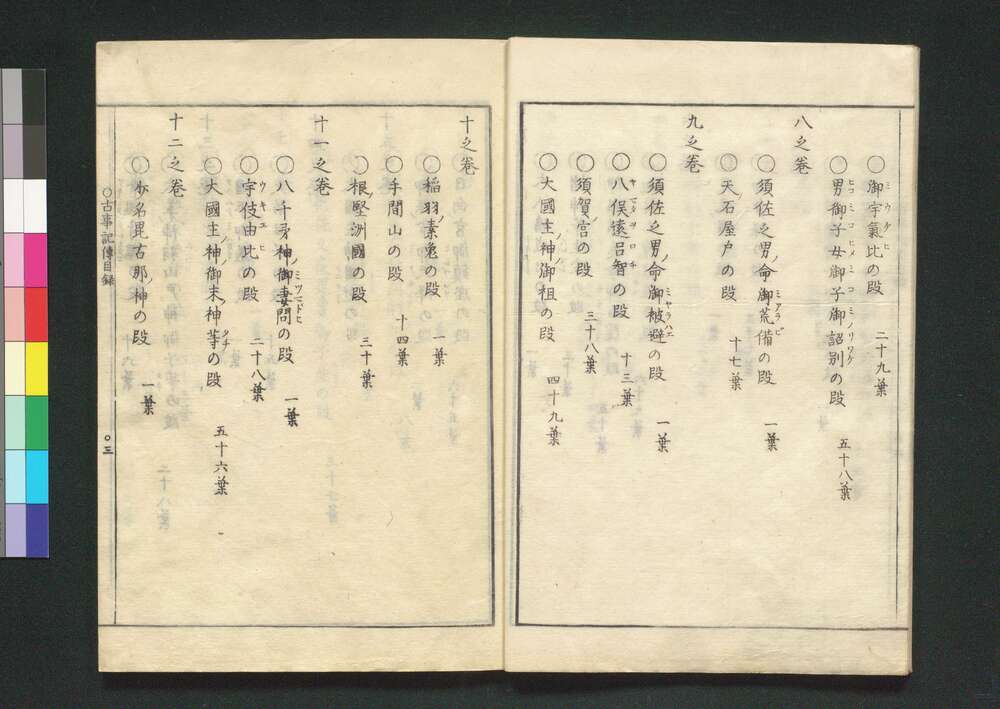 ○御宇氣比の段 二十九葉
○男御子女御子御詔別の段 五十八葉
八之卷
○須佐之男ノ命御荒備の段 一葉
○天ノ石屋戸の段 十七葉
九之卷
○須佐之男ノ命御被避の段 一葉
○八俣遠呂智の段 十三葉
○須賀ノ宮の段 三十八葉
○大國主ノ神ノ御祖の段 四十九葉
十之卷
○稻羽ノ素兎の段 一葉
○手間山の段 十四葉
○根ノ堅洲國の段 三十葉
十一之卷
○八千矛ノ神ノ御妻問の段 一葉
○宇伎由比の段 二十八葉
○大國主ノ神ノ御末ノ神等の段 五十六葉
十二之卷
○少名毘古那ノ神の段 一葉
○古事記傳目録
○三